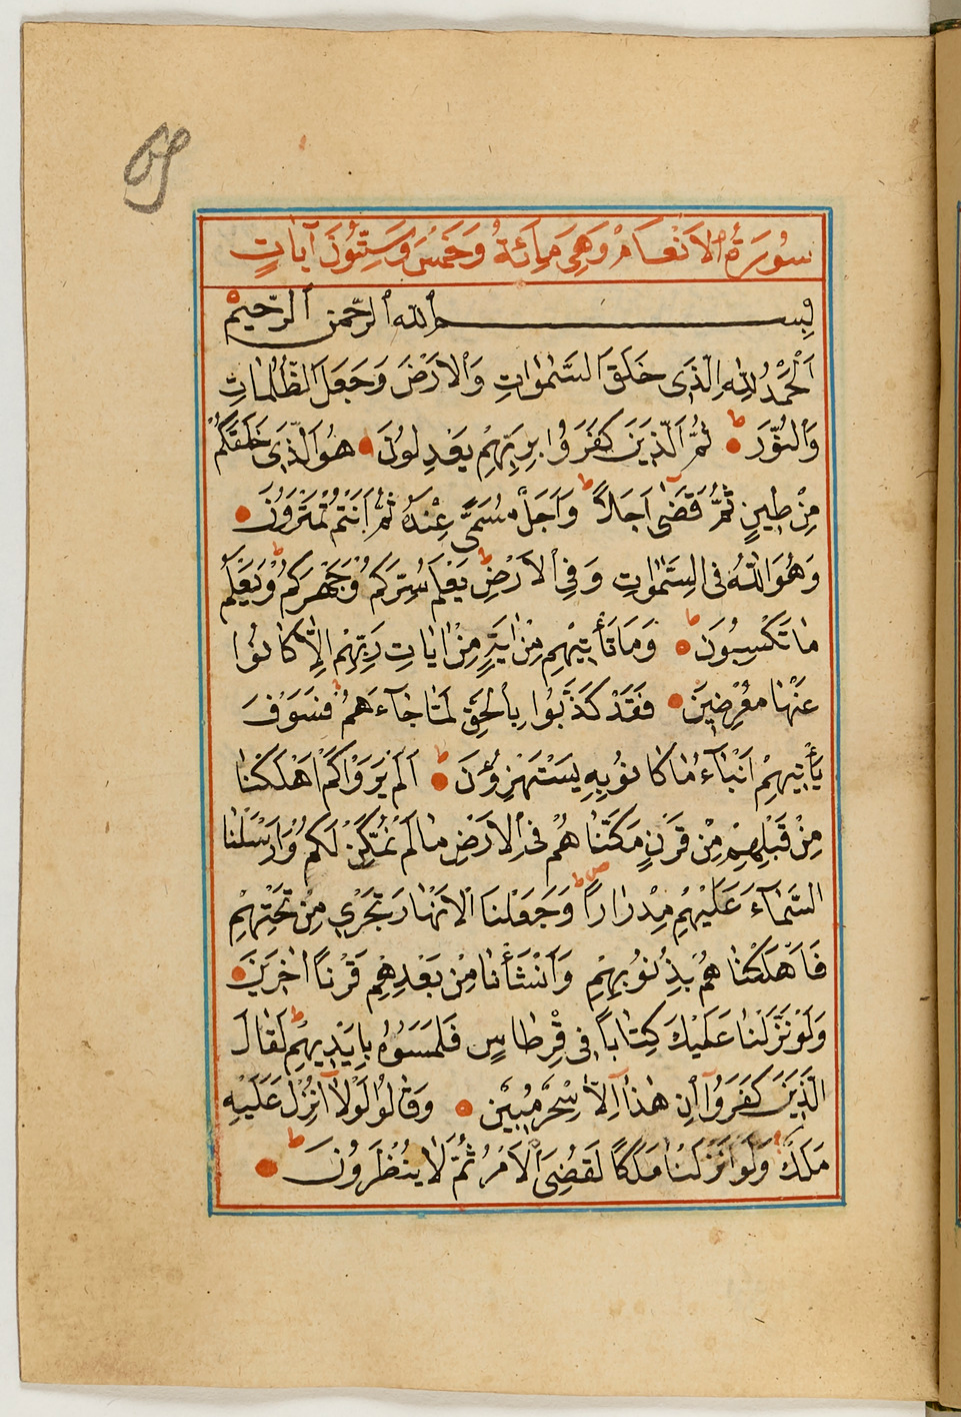 سُورَةُ الْاَنْعَامْ وَهِىَ مِائَةٌ وَخَمْسَ وَسِتُّونَ آيَاتٍ
بِسْمِ اللهِ الرَّحْمٰنِ الرَّحِيمِ
اَلْحَمْدُ لِلّٰهِ الَّذِى خَلَقَ السَّمٰوَاتِ وَالْاَرْضَ وَجَعَلَ الظُّلُمَاتِ
وَالنُّورَ ط ثُمَّ الَّذِينَ كَفَرُوا بِرَبِّهِمْ يَعْدِلُونَ هُوَ الَّذِى خَلَقَكُمْ
مِنْ طِينٍ ثُمَّ قَضٰى اَجَلاً ط وَاَجَلٌ مُسَمًّى عِنْدَهُ ثُمَّ اَنْتُمْ تَمْتَرُونَ
وَهُوَ اللّٰهُ فِى السَّمٰوَاتِ وَفِى الْاَرْضِ ط يَعْلَمُ سِرَّكُمْ وَجَهْرَكُمْ وَيَعْلَمُ
مَا تَكْسِبُونَ ط وَمَا تَأْتِيهِمْ مِنْ اٰيَةٍ مِنْ اٰيَاتِ رَبِّهِمْ اِلَّا كَانُوا
عَنْهَا مُعْرِضِينَ فَقَدْ كَذَّبُوا بِالْحَقِّ لَمَّا جَآءَهُمْ فَسَوْفَ
يَأْتِيهِمْ اَنْبَآءُ مَا كَانُو بِهِ يَسْتَهْزِؤُنَ ط اَلَمْ يَرَوْا كَمْ اَهْلَكْنَا
مِنْ قَبْلِهِمْ مِنْ قَرْنٍ مَكَّنَّا هُمْ فِى الْاَرْضِ مَا لَمْ نُمَكِّنْ لَكُمْ وَاَرْسَلْنَا
السَّمَآءَ عَلَيْهِمْ مِدْرَارًا ط ص وَجَعَلْنَا الْاَنْهَارَ تَجْرِى مِنْ تَحْتِهِمْ
فَاَهْلَكْنَا هُمْ بِذُنُوبِهِمْ وَاَنْشَأْنَا مِنْ بَعْدِهِمْ قَرْنًا اٰخَرِينَ
وَلَوْ نَزَّلْنَا عَلَيْكَ كِتَابًا فِى قِرْطَاسٍ فَلَمَسُوهُ بِاَيْدِيهِمْ لَقَالَ
الَّذِينَ كَفَرُوٓا اِنْ هٰذَآ اِلَّا سِحْرٌ مُبِينٌ وَقَالُوا لَوْلَآ اُنْزِلَ عَلَيْهِ
مَلَكٌ وَلَوْ اَنْزَلْنَا مَلَكًا لَقُضِىَ الْاَمْرُ ثُمَّ لَا يُنْظَرُونَ ط